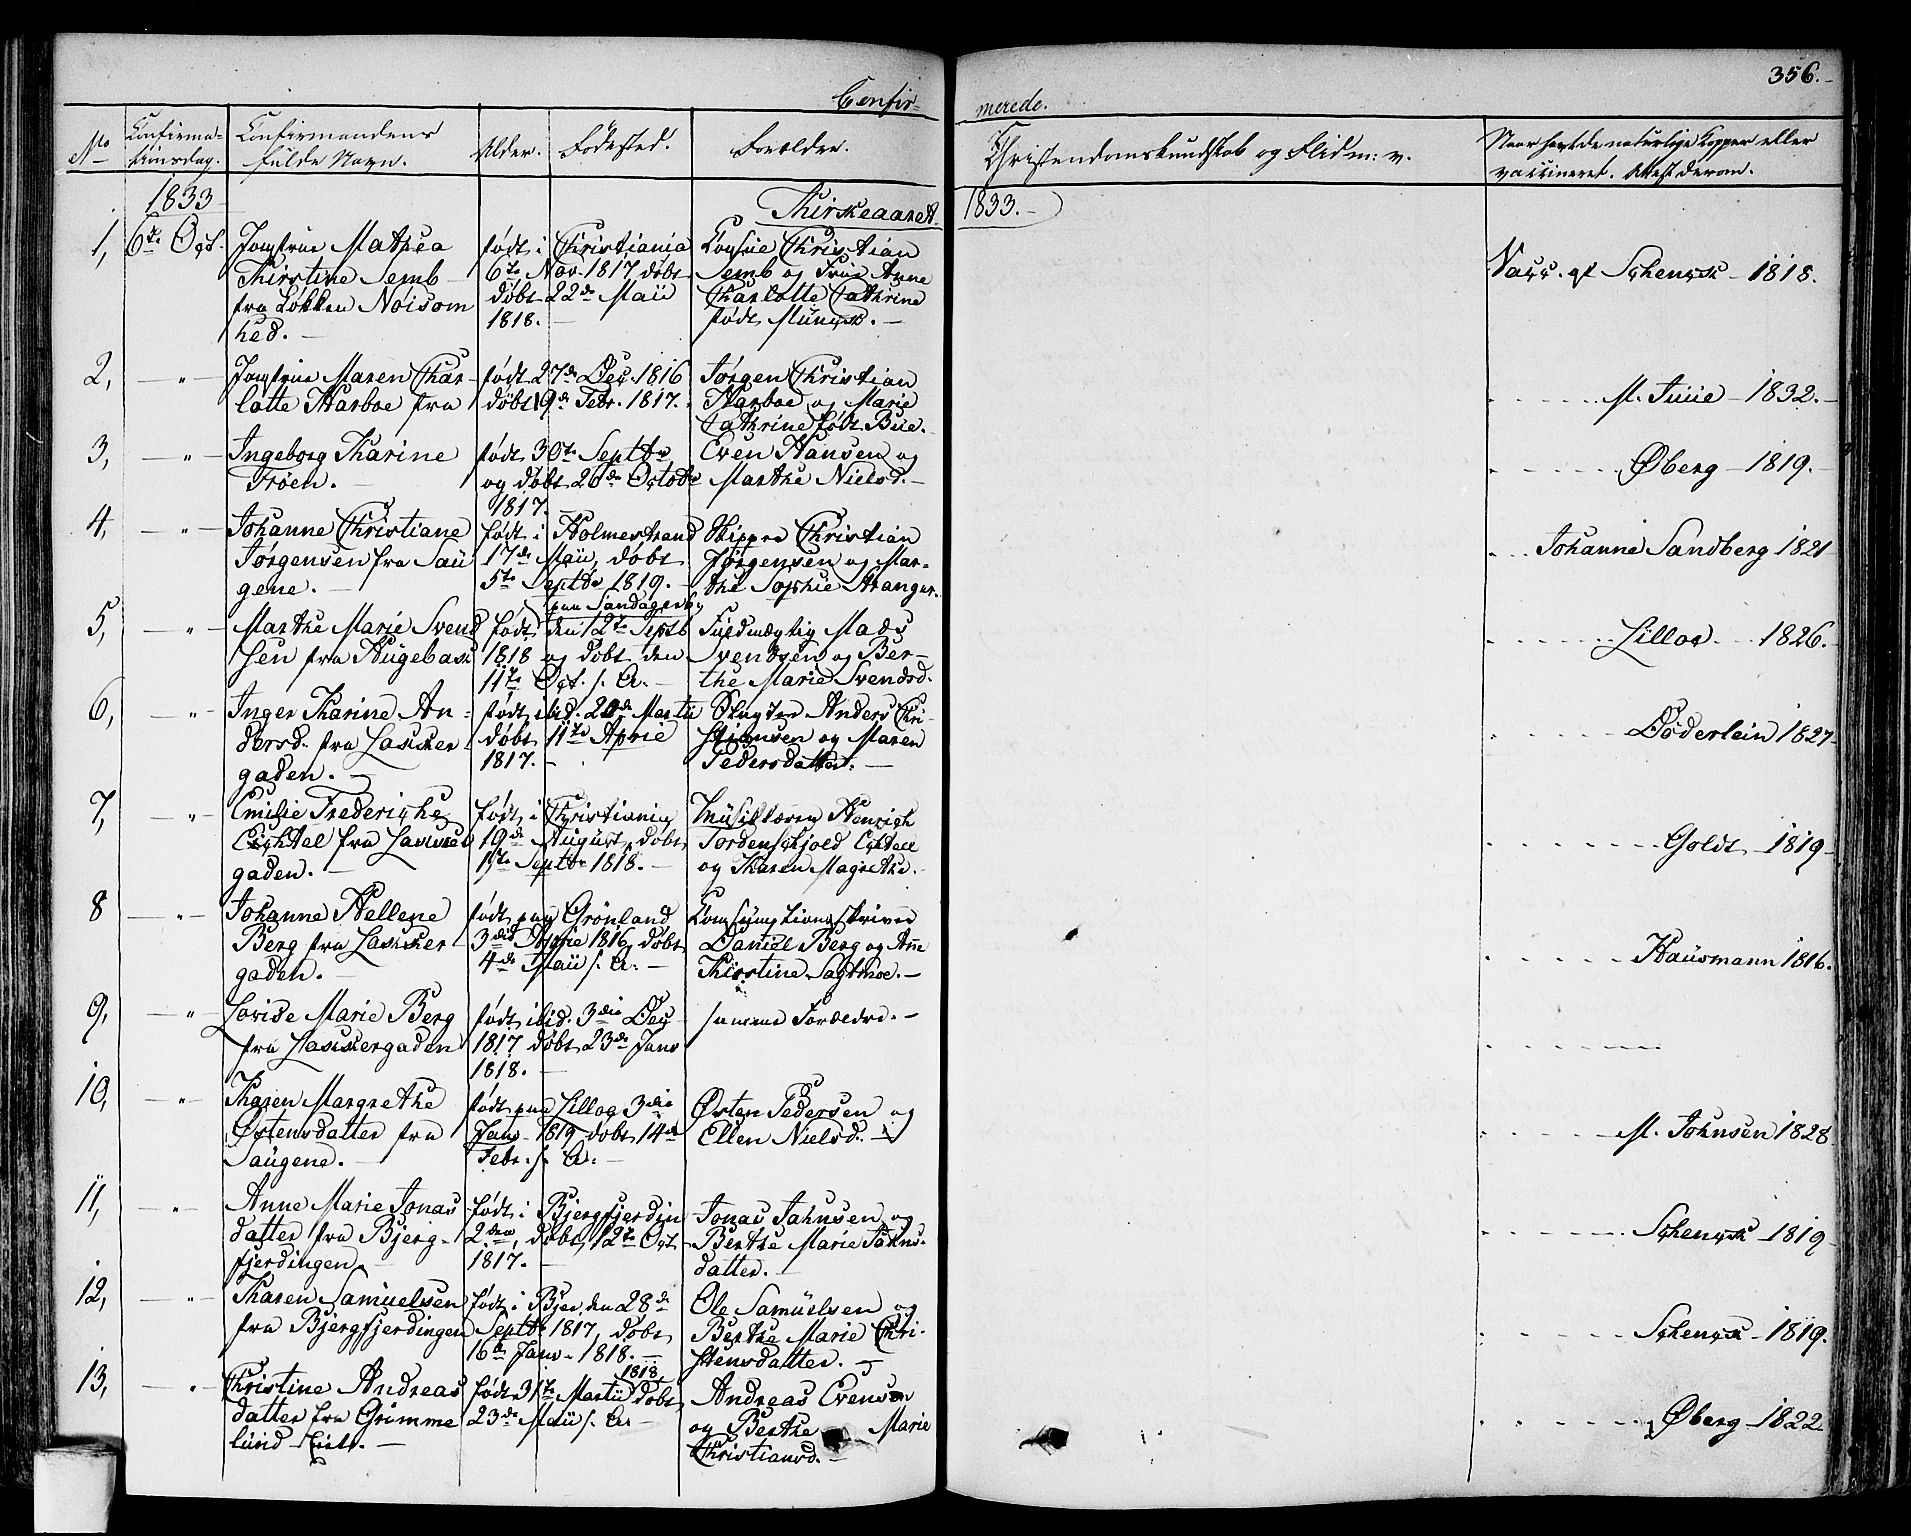 356.
Confir-
merede.
No
Confirma-
tionsdag.
Confirmandens
fulde Navn.
Alder.
Fødested.
Forældre.
Christendomskundskab og Flid m: v.
Naar havt de naturlige Kopper eller
vaccineret. Attest derom.
1833
Kirkeaaret
1833.
1,
6te Oct.
Jomfrue Mathea
Kirstine Semb
fra Løkken Noisom
hed.
født i Christiania
6te Nov. 1817, døbt
døbt 22de Maii
1818.
Christian
Semb og Frue Anne
Charlotte Cathrine
født Munch.
Vacc. af Schenck 1818.
2,
Jomfrue Maren Char-
lotte Harboe fra
født 27de Dec. 1816
døbt 19de Febr. 1817.
Jørgen Christian
Harboe og Marie
Cathrine født Bue.
M. Tuue 1832.
3,
Ingeborg Karine
Frøen.
født 30te Septbr
og døbt 26de Octobr
1817.
Even Hansen og
Marthe Nielsd.
Øberg 1819.
4,
Johanne Christiane
Jørgensen fra Sau
gene.
født i Holmestrand
17de Maii, døbt
5te Septbr 1819.
Skipper Christian
Jørgensen og Mar-
the Sophie Stranger.
Johanne Sandberg 1821
5,
Marthe Marie Svend
sen fra Hugebak
paa Sandager
født den 12te Septb
1818 og døbt den
11te Oct. s. A.
Fuldmægtig Mads
Svendsen og Ber-
the Marie Svendsd.
Lillos 1826.
6,
Inger Karine An-
dersd. fra Lakker
gaden.
født ibid. 20de Martii
døbt 11te April
1817.
Slagter Anders Chri-
stiansen og Maren
Pedersdatter.
Døderlein 1827
7,
Emilie Frederiche
Eichtel fra Lakker
gaden.
født i Christiania
19de August, døbt
15te Septbr 1818.
Henrich
Tordenschjold
og Karen Magrethe.
Goldt 1819
8
Johanne Hellene
Berg fra Lakker
gaden.
født paa Grønland
3die April 1816, døbt
4de Maii s. A.
Consumptionsskriver
Daniel Berg og Ane
Kirstine Sagtmoe.
Hausmann 1816.
9,
Lovise Marie Berg
fra Lakkergaden
født ibid. 3die Dec
1817 døbt 23de Janr
1818.
samme Forældre.
10,
Karen Margrethe
Østensdatter fra
Saugene.
født paa Lillog 3die
Janr 1819 døbt 14de
Febr. s. A.
Østen Pedersen og
Ellen Nielsd.
M. Johnsen 1828
11,
Anne Marie Jonas
datter fra Bjerg-
fjerdingen
født i Bjergfjerdin
2den, døbt 12te Oct
1817.
Jonas Jahnsen og
Berthe Marie Jahns-
datter.
Schenck 1819
12,
Karen Samuelsen
fra Bjergfjerdingen
født i Bjer. den 28de
Septbr 1817, døbt
16de Janr 1818.
Ole Samuelsen og
Berthe Marie Chri-
stensdatter.
Schenck 1819.
13,
Christine Andreas
datter fra Grimme
lund
1818,
født 31te Martii døbt
23de Maii s. A.
Andreas Evensen
og Berthe Marie
Christiansd.
Øberg 1822